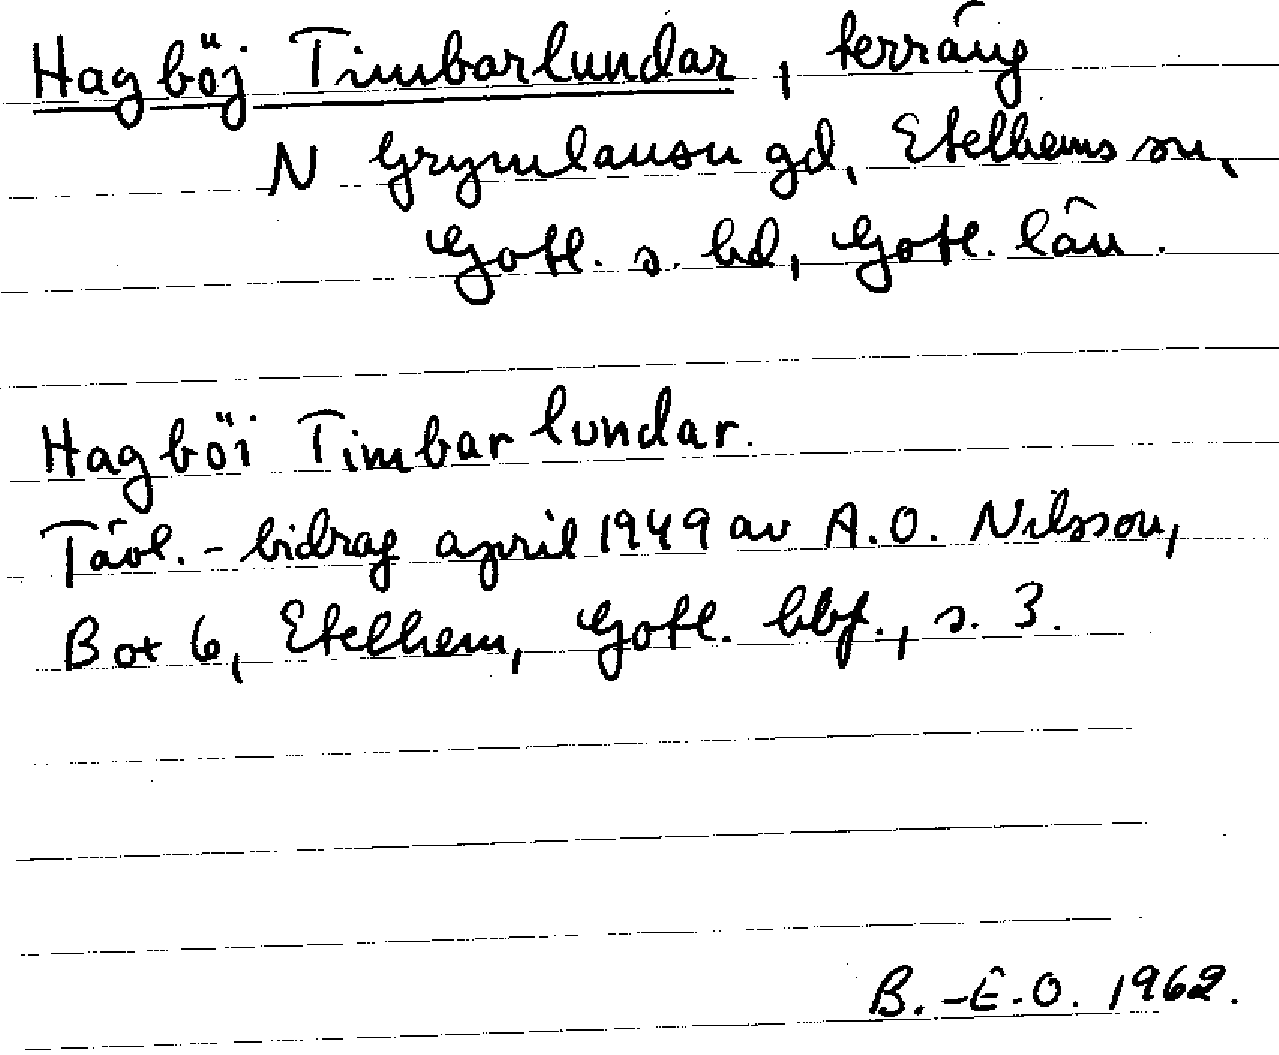 Hagböj Timbarlundar, terräng
N Grymlausu gd, Etelhems sn,
Gotl. s. hd, Gotl. län.
Hagböi Timbar lundar.
Tävl.-bidrag april 1949 av A.O. Nilsson,
Box 6, Etelhem, Gotl. hbf., s. 3.
B.-E.O. 1962.